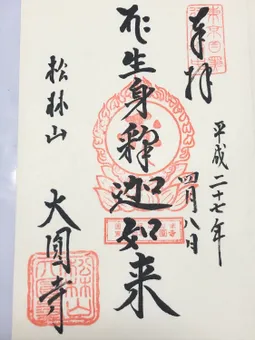 奉拝
平成二十七年
四月八日
生身釋迦如来
松林山
大圓寺